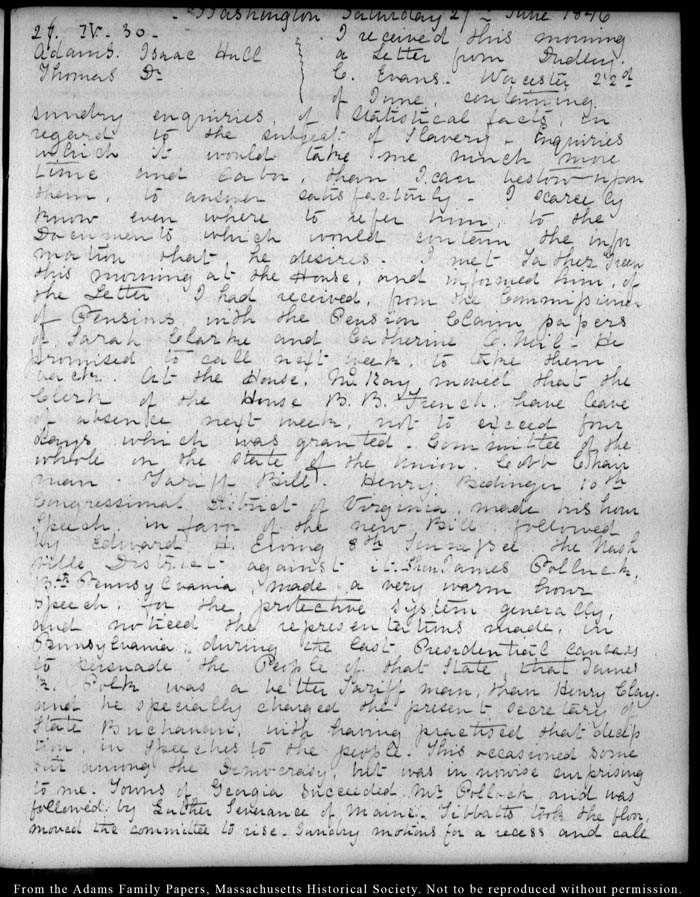 Washington Saturday 27 June 1846
27. IV. 30.
Adams. Isaac Hull
Thomas Do
I received this morning
a Letter from Dudley
C. Evans. Worcester 22d
of June, containing
sundry enquiries, of statistical facts, in
regard to the subject of Slavery - Enquiries
which it would take me much more
time and labor, than I can bestow upon
them, to answer satisfactorily - I scarcely
know even where to refer him, to the
Documents which would contain the infor
mation that, he desires. I met Father
this morning at the House, and informed him, of
the Letter I had received, from the Commissioner
of Pensions, with the Pension Claim papers
of Sarah Clarke and Catherine He
promised to call next week, to take them
back. At the House, McKay moved that the
Clerk of the House B. B. French, have leave
of absence next week, not to exceed four
days, which was granted. Committee of the
whole on the state of the Union. Cobb Chair
man. Tariff Bill. Henry Bedinger 10th
Congressional District of Virginia, made his hour
Speech, in favor of the new Bill followed
by Edward H. Ewing 8th Tennessee the Nash
ville District against it. Then James Pollock,
13th Pennsylvania, made a very warm hour
speech, for the protective system generally,
and noticed the representations made, in
Pennsylvania, during the last Presidential canvass
to persuade the People of that State, that James
K. Polk was a better Tariff man, than Henry Clay.
and he specially charged the present Secretary of
State Buchanan, with having practised that decep
tion, in Speeches to the people. This occasioned some
stir among the Democrasy, but was in nowise surprising
to me. Towns of Georgia succeeded Mr Pollock and was
followed by Luther Severance of Maine. Tibbatts took the floor,
moved the committee to rise. Sundry motions for a recess and call
From the Adams Family Papers, Massachusetts Historical Society. Not to be reproduced without permission.